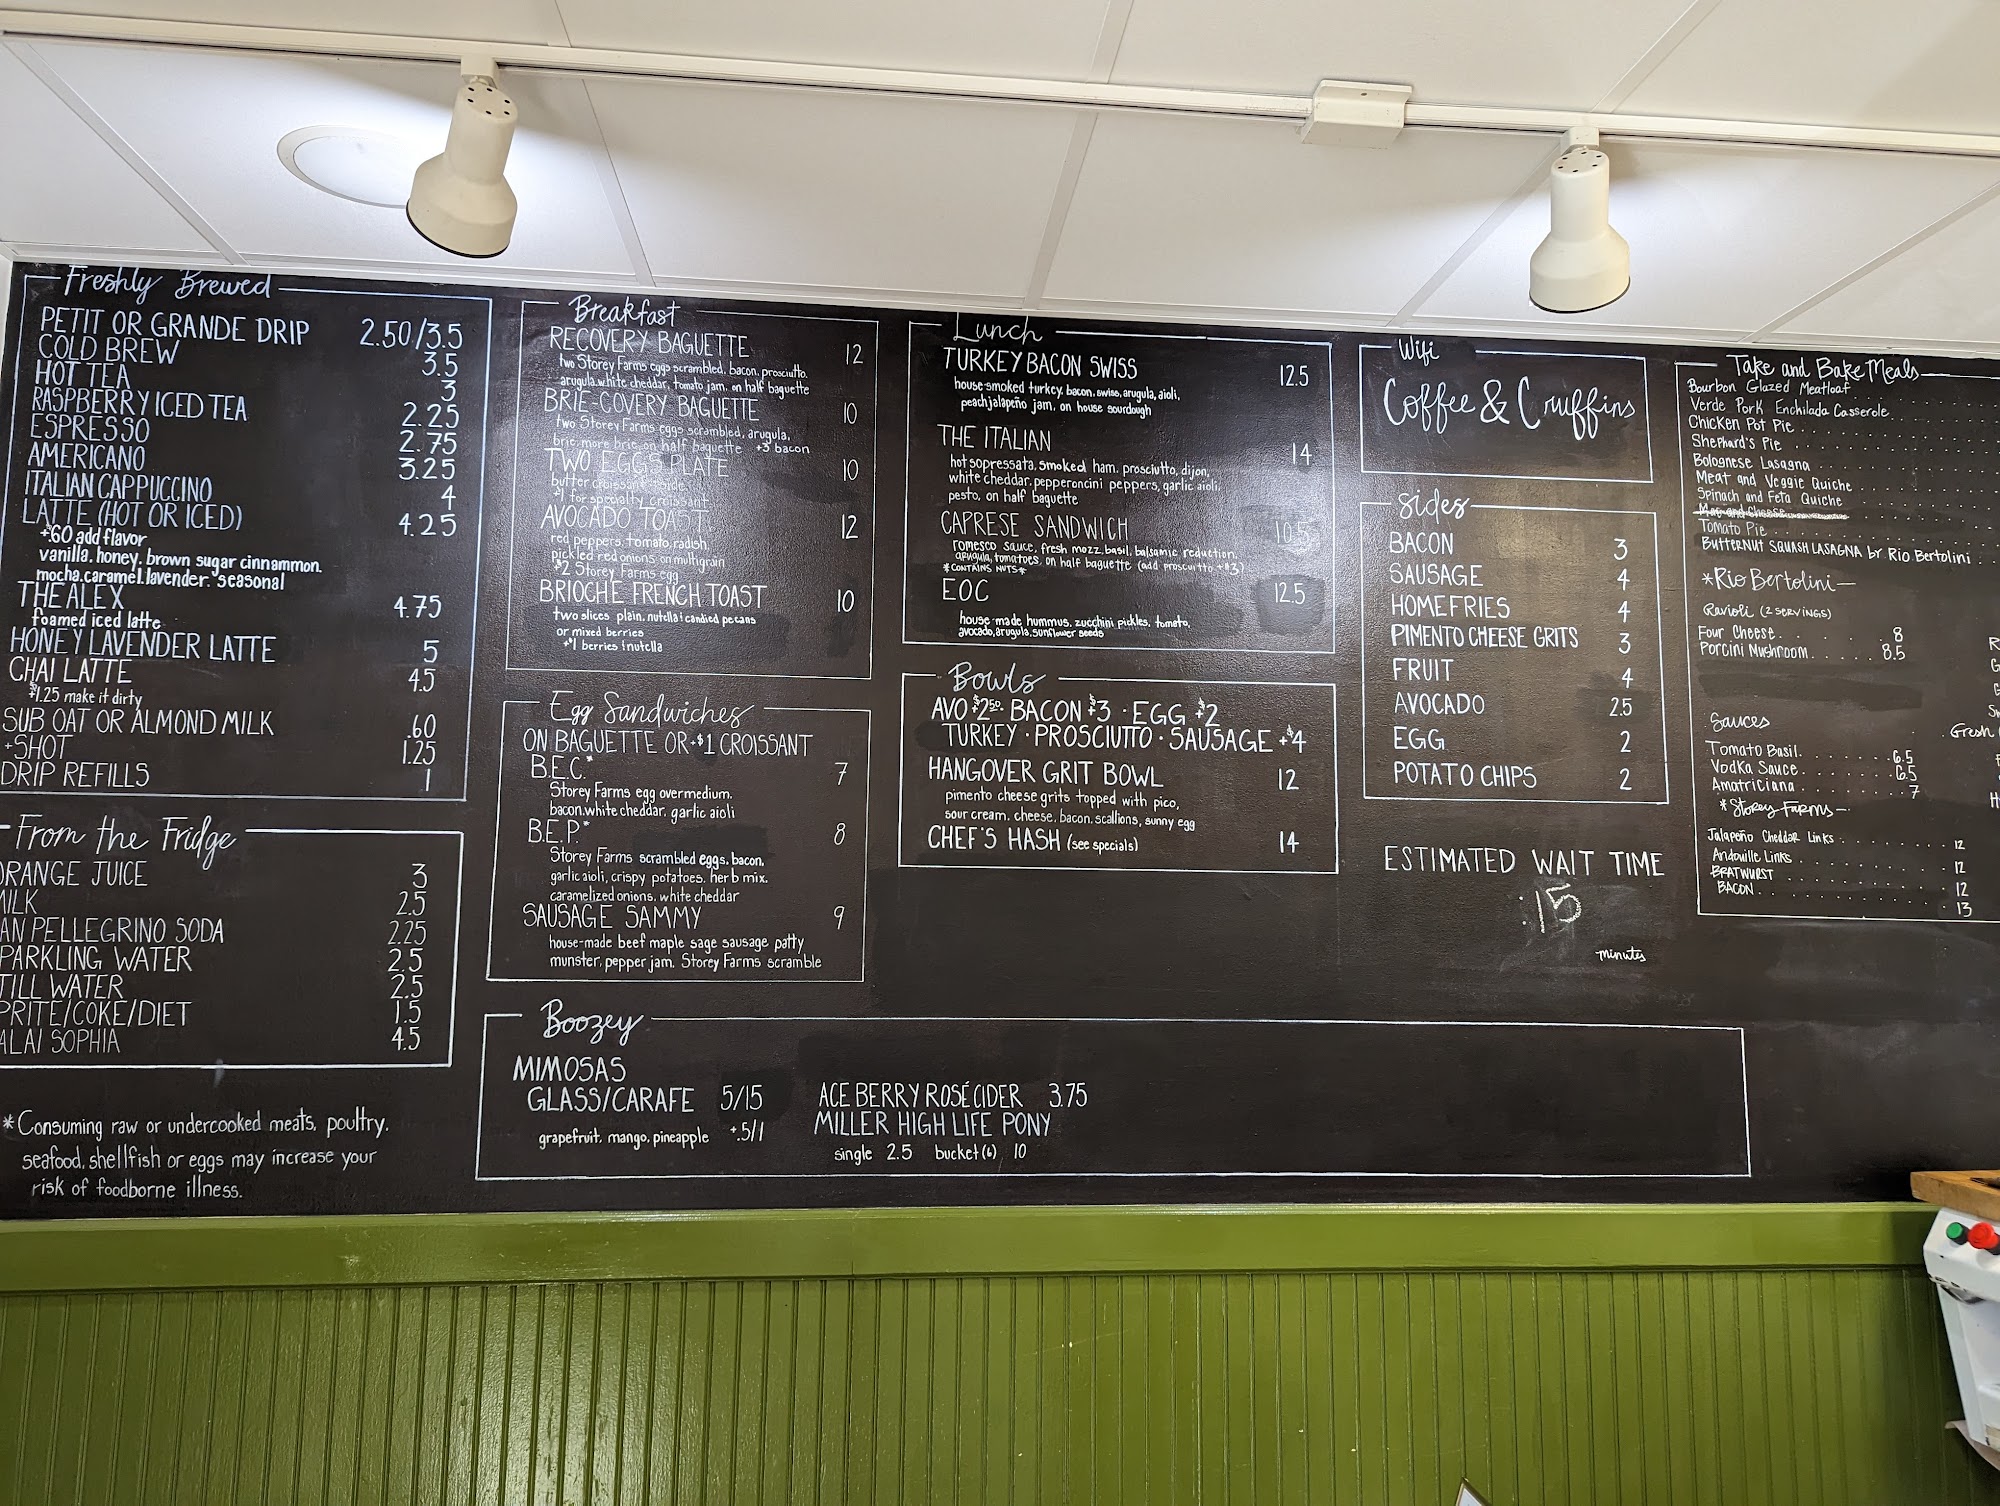 Freshly Brewed
PETIT OR GRANDE DRIP 2.50/3.5
COLD BREW 3.5
HOT TEA 3
RASPBERRY ICED TEA 2.25
ESPRESSO 2.75
AMERICANO 3.25
ITALIAN CAPPUCCINO 4
LATTE (HOT OR ICED) 4.25
+$.60 add flavor
vanilla, honey, brown sugar cinnammon,
mocha, caramel, lavender, *seasonal
THE ALEX 4.75
foamed iced latte
HONEY LAVENDER LATTE 5
CHAI LATTE 4.5
+$1.25 make it dirty
SUB OAT OR ALMOND MILK .60
+SHOT 1.25
DRIP REFILLS 1
From the Fridge
ORANGE JUICE 3
MILK 2.5
AN PELLEGRINO SODA 2.25
PARKLING WATER 2.5
TILL WATER 2.5
PRITE/COKE/DIET 1.5
ALAI SOPHIA 4.5
*Consuming raw or undercooked meats, poultry,
seafood, shellfish or eggs may increase your
risk of foodborne illness.
Breakfast
RECOVERY BAGUETTE 12
two Storey Farms eggs scrambled, bacon, prosciutto,
arugula, white cheddar, tomato jam, on half baguette
BRIE-COVERY BAGUETTE 10
two Storey Farms eggs scrambled, arugula,
brie, more brie, on half baguette +3 bacon
TWO EGGS PLATE 10
butter croissant, side
+1 for specialty croissant
AVOCADO TOAST 12
red peppers, tomato, radish,
pickled red onions, on multigrain
+$2 Storey Farms egg
BRIOCHE FRENCH TOAST 10
two slices plain, nutella+candied pecans
or mixed berries
+$1 berries+nutella
Egg Sandwiches
ON BAGUETTE OR +$1 CROISSANT
B.E.C.* 7
Storey Farms egg overmedium,
bacon, white cheddar, garlic aioli
B.E.P.* 8
Storey Farms scrambled eggs, bacon,
garlic aioli, crispy potatoes, herb mix,
caramelized onions, white cheddar
SAUSAGE SAMMY 9
house-made beef maple sage sausage patty
munster, pepper jam, Storey Farms scramble
Boozey
MIMOSAS
GLASS/CARAFE 5/15
grapefruit, mango, pineapple +.5/1
ACE BERRY ROSÉ CIDER 3.75
MILLER HIGH LIFE PONY
single 2.5 bucket(6) 10
Lunch
TURKEY BACON SWISS 12.5
house-smoked turkey, bacon, swiss, arugula, aioli,
peach jalapeño jam, on house sourdough
THE ITALIAN 14
hot sopressata, smoked ham, prosciutto, dijon,
white cheddar, pepperoncini peppers, garlic aioli,
pesto, on half baguette
CAPRESE SANDWICH 10.5
romesco sauce, fresh mozz, basil, balsamic reduction,
arugula, tomatoes, on half baguette (add prosciutto +$3)
*CONTAINS NUTS*
EOC 12.5
house-made hummus, zucchini pickles, tomato,
avocado, arugula, sunflower seeds
Bowls
AVO +$2.50 · BACON +$3 · EGG +$2
TURKEY · PROSCIUTTO · SAUSAGE +$4
HANGOVER GRIT BOWL 12
pimento cheese grits topped with pico,
sour cream, cheese, bacon, scallions, sunny egg
CHEF'S HASH (see specials) 14
Wifi
Coffee & Cruffins
Sides
BACON 3
SAUSAGE 4
HOMEFRIES 4
PIMENTO CHEESE GRITS 3
FRUIT 4
AVOCADO 2.5
EGG 2
POTATO CHIPS 2
ESTIMATED WAIT TIME
:15
minutes
Take and Bake Meals
Bourbon Glazed Meatloaf
Verde Pork Enchilada Casserole
Chicken Pot Pie
Shephard's Pie
Bolognese Lasagna
Meat and Veggie Quiche
Spinach and Feta Quiche
Mac and Cheese
Tomato Pie
Butternut Squash Lasagna by Rio Bertolini
*Rio Bertolini
Ravioli (2 SERVINGS)
Four Cheese 8
Porcini Mushroom 8.5
Sauces
Tomato Basil 6.5
Vodka Sauce 6.5
Amatriciana 7
*Storey Farms
Jalapeño Cheddar Links 12
Andouille Links 12
BRATWURST 12
BACON 13
Fresh